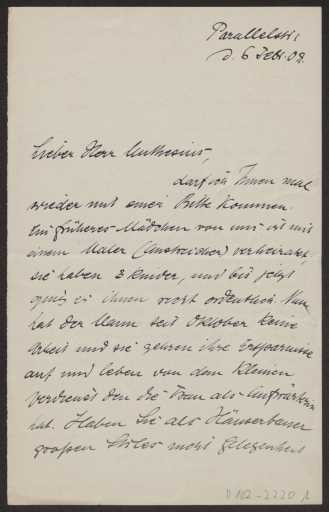 Parallelstr.
d. 6 Febr. 09.
Lieber Herr Muthesius,
darf ich Ihnen mal
wieder mit einer Bitte kommen.
Ein früheres Mädchen von uns ist mit
einem Maler (Anstreicher) verheiratet,
sie haben 2 Kinder, und bis jetzt
ging es ihnen recht ordentlich. Nun
hat der Mann seit Oktober keine
Arbeit und sie zehren ihre Ersparnisse
auf und leben von dem kleinen
Verdienst den die Frau als Aufwärterin
hat. Haben Sie als Häuserbauer
großen Stiles nicht Gelegenheit
D 102-2220